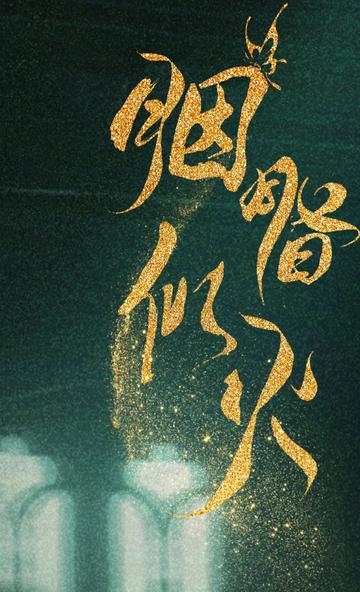 胭脂
似火